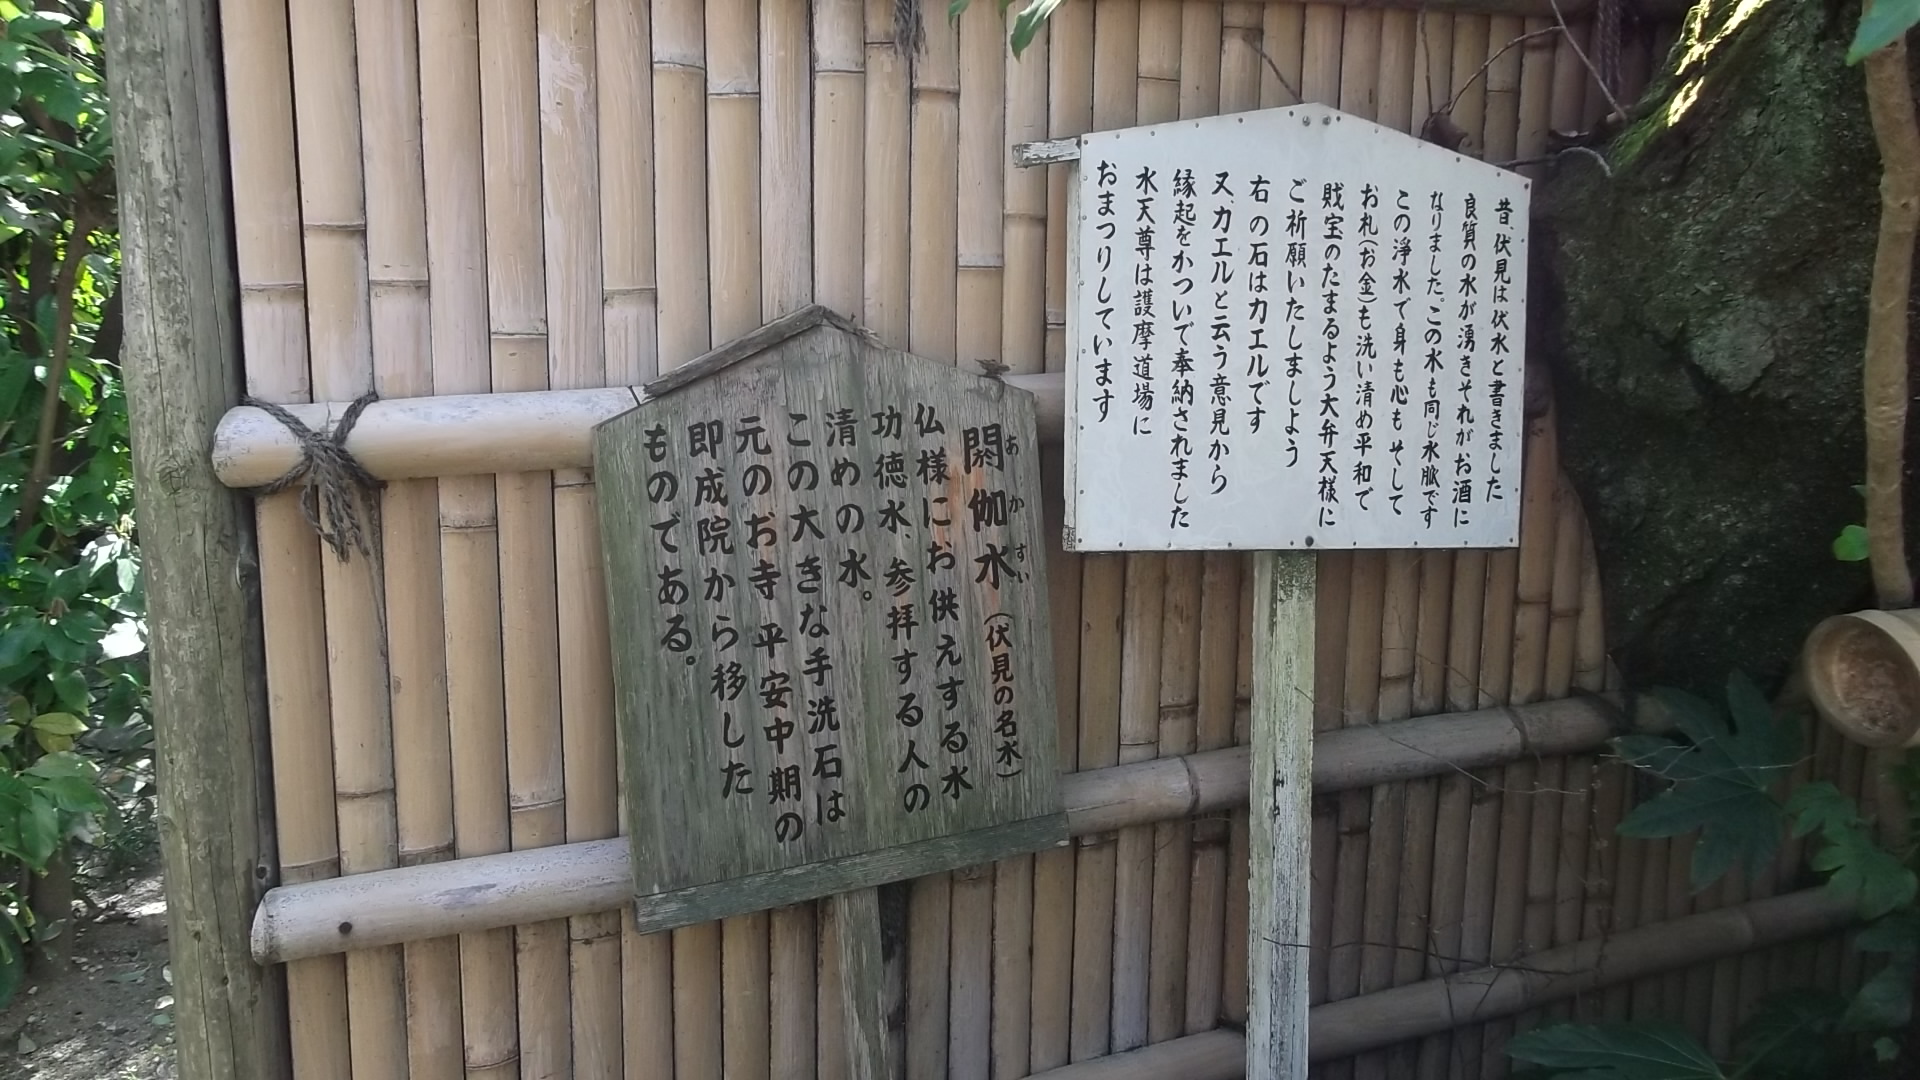 昔、伏見は伏水と書きました
良質の水が湧きそれがお酒に
なりました。この水も同じ水脈です
この浄水で身も心もそして
お札(お金)も洗い清め平和で
財宝のたまるよう大弁天様に
ご祈願いたしましよう
右の石はカエルです
又、カエルと云う意見から
縁起をかついで奉納されました
水天尊は護摩道場に
おまつりしています
閼伽水(伏見の名水)
あかすい
仏様にお供えする水
功徳水、参拝する人の
清めの水。
この大きな手洗石は
元のお寺 平安中期の
即成院から移した
ものである。